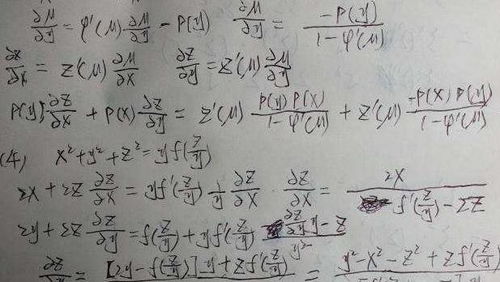 ∂μ/∂y = φ'(μ)·∂μ/∂y - P(y)   ∂μ/∂y = -P(y)/(1-φ'(μ))
∂z/∂x = z'(μ) ∂μ/∂x   ∂z/∂y = z'(μ) ∂μ/∂y
P(y)·∂z/∂x + P(x)·∂z/∂y = z'(μ) P(y)P(x)/(1-φ'(μ)) + z'(μ) -P(x)P(y)/(1-φ'(μ))
(4) x²+y²+z² = yf(z/y)
2x+2z ∂z/∂x = yf'(z/y)·1/y ∂z/∂x · ∂z/∂x = 2x/(f'(z/y)-2z)
2y+2z ∂z/∂y = f(z/y) + yf'(z/y) (∂z/∂y y - z)/y²
∂z/∂y = [2y-f(z/y)]y+zf'(z/y) = y²-x²-z²+zf'(z/y)